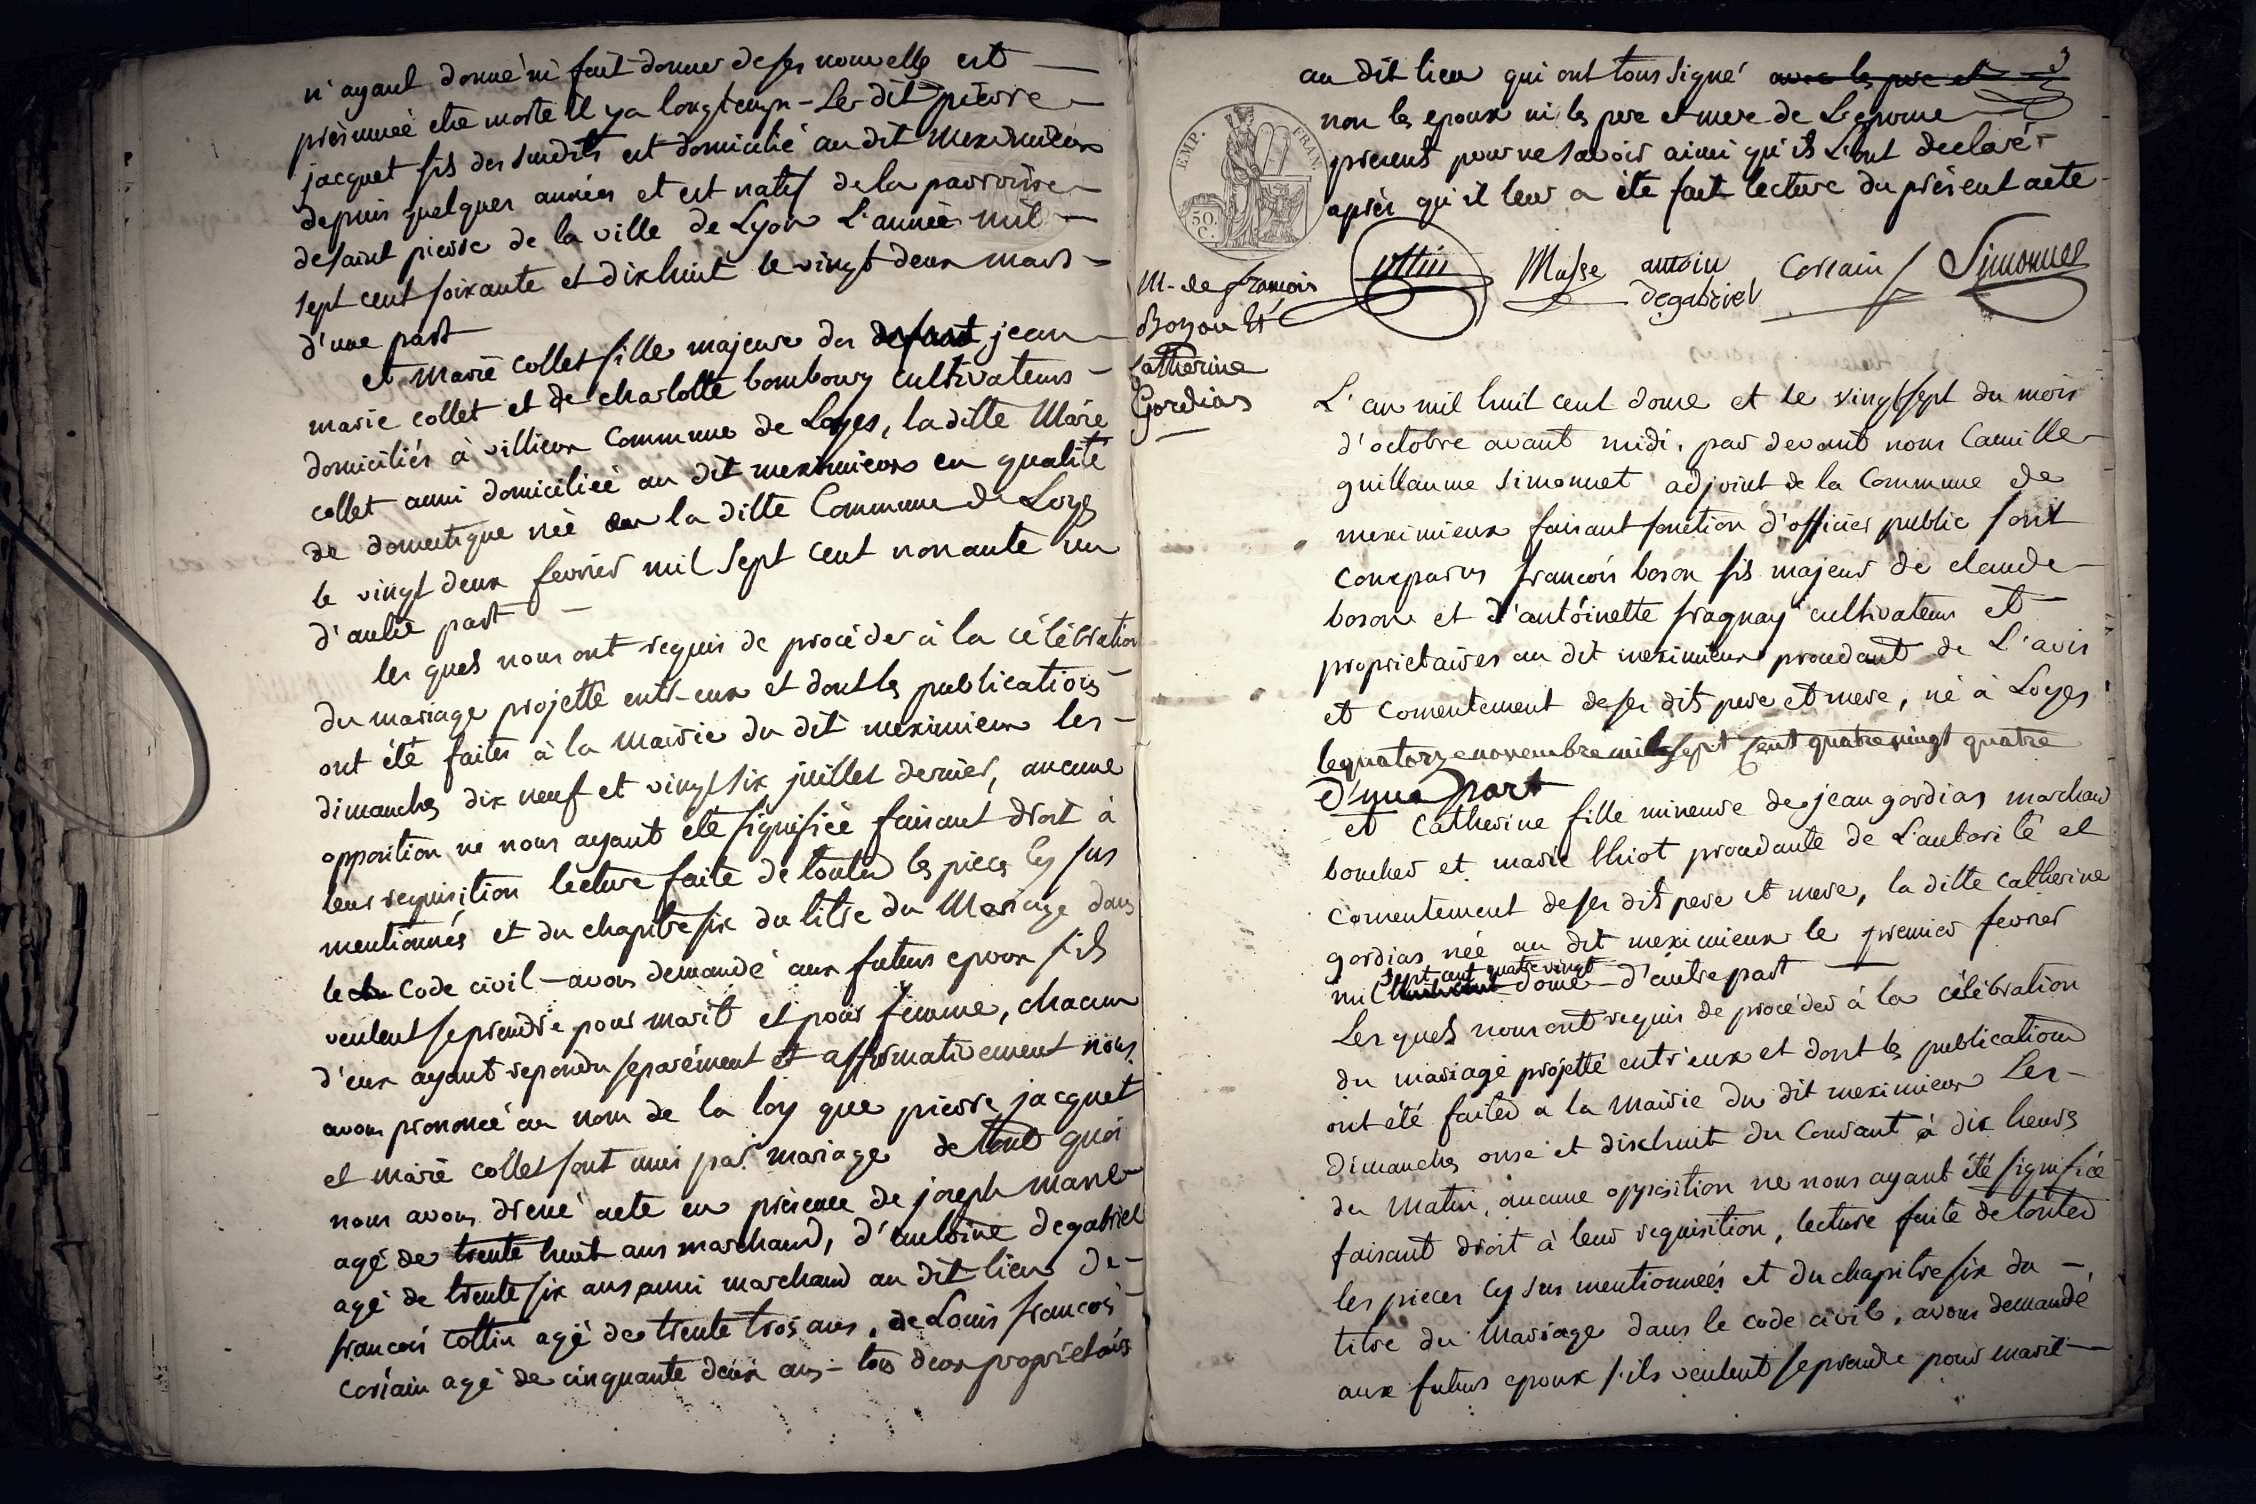 n'ayant donné ni fait donner de ses nouvelle est
présumeé etre morte il y a longtemps - Le dit pierre
jacquet fils des susdits est domicilié au dit meximieux
depuis quelques années et est natif de la parroisse
de saint pierre de la ville de Lyon L'année mil
sept cent soixante et dixhuit le vingt deux mars
d'une part
et Marie collet fille majeure des defunt jean
marie collet et de charlotte bombourg cultivateurs
domiciliés à villieux Commune de Loyes, la ditte Marie
collet aussi domiciliée au dit meximieux en qualité
de domestique née la ditte Commune de Loyes
le vingt deux fevrier mil sept cent nonante un
d'autre part
les quels nous ont requis de procéder à la célébration
du mariage projetté entr-eux et dont les publications
ont été faites à la mairie du dit meximieux les
dimanches dix neuf et vingt six juillet dernier, aucune
opposition ne nous ayant été signifiée faisant droit à
leur requisition lecture faite de toutes les pieces cy sus
mentionnés et du chapitre six du titre du Mariage dans
le code civil - avons demandé aux futurs epoux s'ils
veulent se prendre pour marit et pour femme, chacun
d'eux ayant repondu separément et affirmativement nous
avons prononcé au nom de la loy que pierre jacquet
et marie collet sont unis par mariage de tout quoi
nous avons dressé acte en présence de joseph masse
agé de trente huit ans marchand, d'antoine degabriel
agé de trente six ans aussi marchand au dit lieu de
francois Cottin agé de trente trois ans, de Louis francois
Corsain agé de cinquante deux ans - tous deux proprietaires
3
au dit lieu qui ont tous signé avec les pere et
non les epoux ni les pere et mere de L'epouse
presents pour ne savoir ainsi qu'ils L'ont declaré
après qu'il leur a été fait lecture du présent acte
EMP. FRAN.
50 C.
Cottin Masse antoin degabriel Corsain Simonnet
M. de françois
Bozon Et
Catherine
Gordias
L'an mil huit cent douze et le vingt sept du mois
d'octobre avant midi, par devant nous Camille
guillaume simonnet adjoint de la Commune de
meximieux faisant fonction d'officier public sont
comparus francois boson fils majeur de claude
boson et d'antoinette fragnay cultivateurs et
proprietaires au dit meximieux procedant de L'avis
et consentement de ses dits pere et mere, né à Loyes
le quatorze novembre mil sept cent quatrevingt quatre
d'une part
et Catherine fille mineure de jean gordias marchand
boucher et marie thiot procedante de L'autorité et
consentement de ses dits pere et mere, la ditte catherine
gordias née au dit meximieux le premier fevrier
sept cent quatrevingt
mil huit cent douse - d'autre part
Les quels nous ont requis de procéder à la célébration
du mariage projetté entr'eux et dont les publications
ont été faites a la mairie du dit meximieux Les
Dimanches onse et dixhuit du Courant à dix heures
du Matin, aucune opposition ne nous ayant été signifiée
faisant droit à leur requisition, lecture faite de toutes
les pieces cy sus mentionneés et du chapitre six du
titre du Mariage dans le code civil, avons demandé
aux futurs epoux s'ils veulent se prendre pour marit